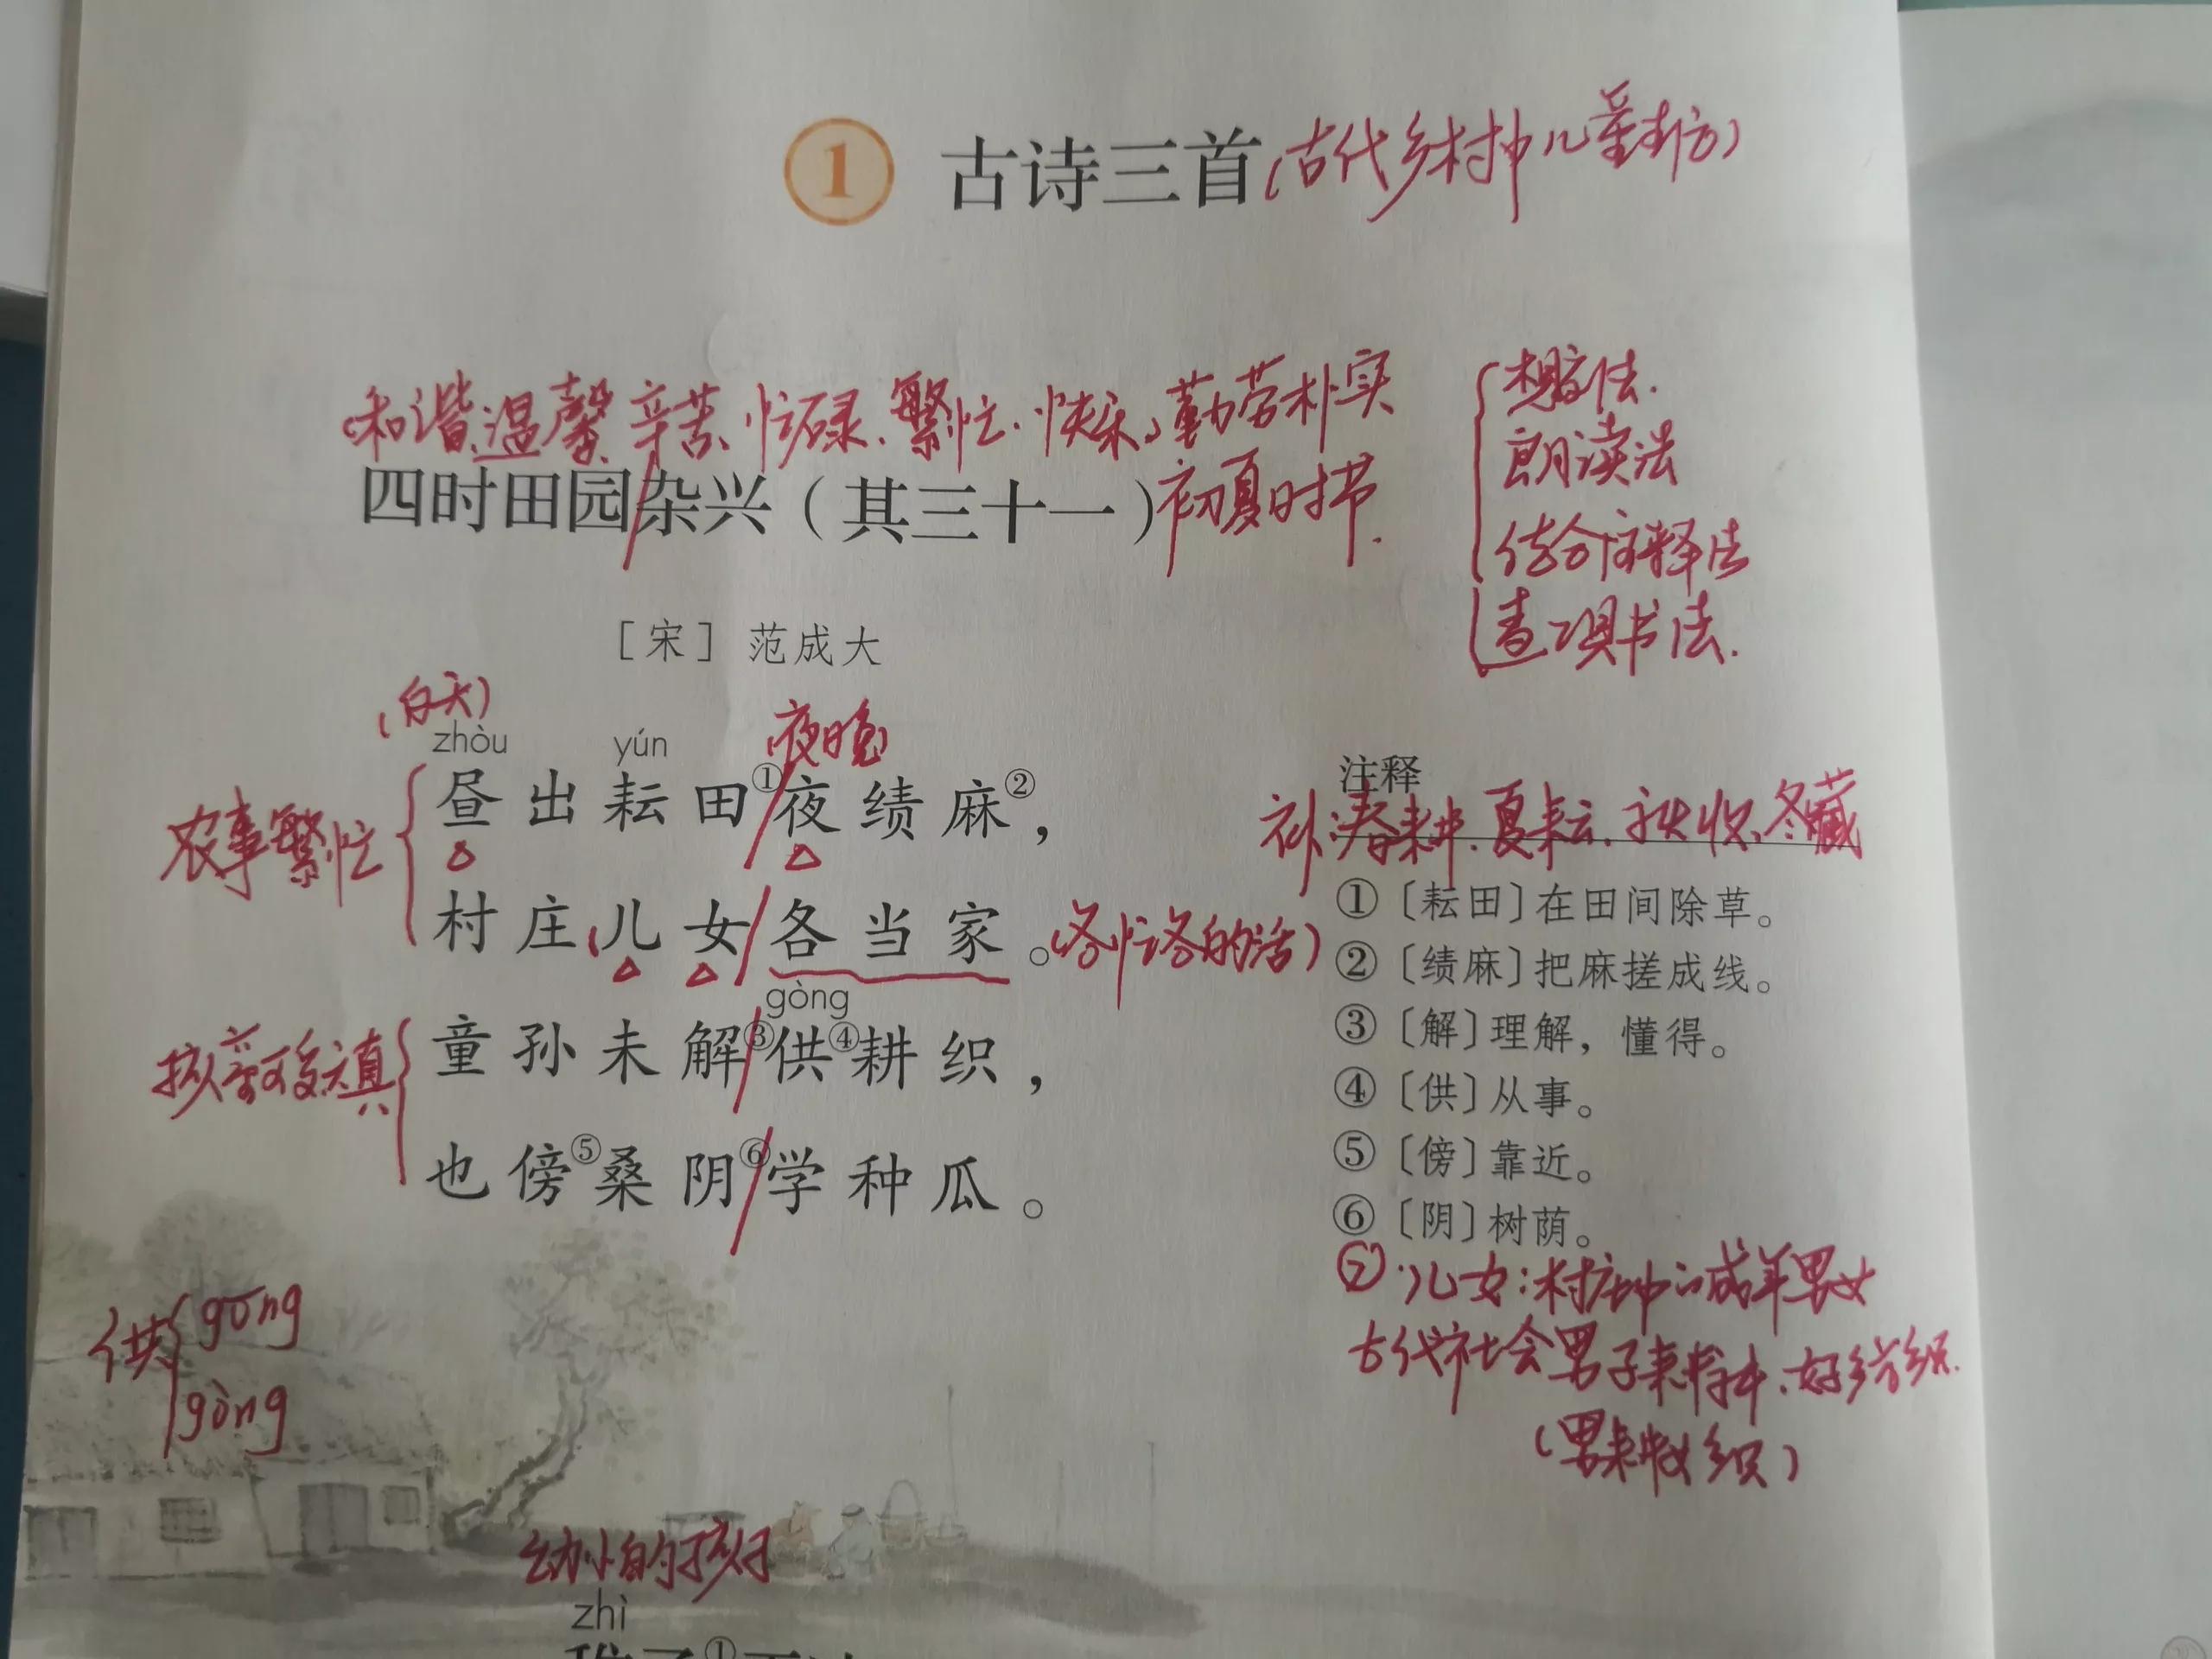 1 古诗三首(古代乡村中儿童
(和谐、温馨、辛苦、忙碌、繁忙、快乐、勤劳朴实
想象法.
朗读法
结合注释法
查工具书法.
四时田园/杂兴（其三十一）初夏时节.
［宋］ 范成大
(白天) 夜晚
zhòu yún
农事繁忙 昼出耘田①/夜绩麻②，
村庄儿女/各当家。(各忙各的活)
gòng
孩童可爱天真 童孙未解③/供④耕织，
也傍⑤桑阴⑥/学种瓜。
注释
补:春耕.夏耘.秋收.冬藏
①〔耘田〕在田间除草。
②〔绩麻〕把麻搓成线。
③〔解〕理解，懂得。
④〔供〕从事。
⑤〔傍〕靠近。
⑥〔阴〕树荫。
⑦.儿女:村庄中的成年男女
古代社会男子耕种.女纺织.
(男耕女织)
供 gōng
gòng
幼小的孩子
zhì